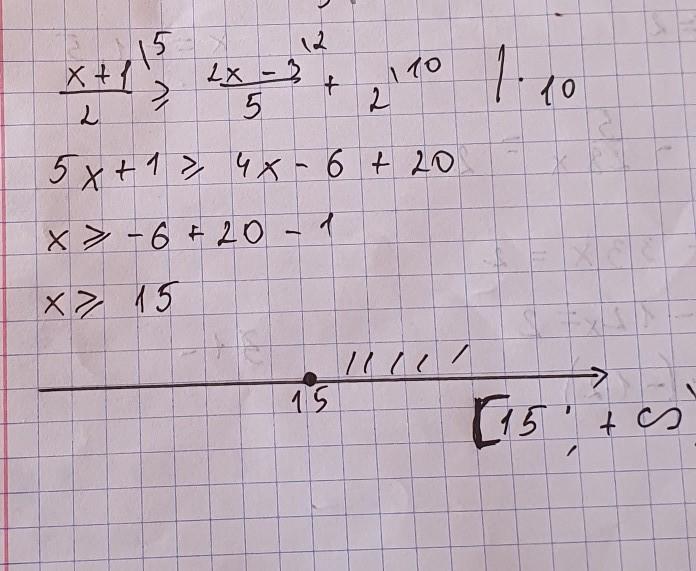 (x+1)/2 \5 ≥ (2x-3)/5 \2 + 2 \10 |·10
5x+1 ≥ 4x-6+20
x ≥ -6+20-1
x ≥ 15
15
[15; +∞)